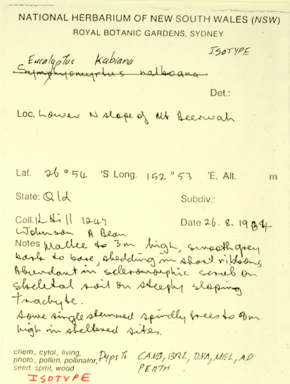 NATIONAL HERBARIUM OF NEW SOUTH WALES (NSW)
ROYAL BOTANIC GARDENS, SYDNEY
ISOTYPE
Eucalyptus Kabiana
Det.:
Loc. Lower N slope of Mt Beerwah
Lat. 26° 54 'S Long. 152° 53 'E, Alt. m
State: Qld Subdiv.:
Coll. K Hill 1247 Date 26.8.1984
L Johnson A Bean
Notes Mallee to 3m high, smooth grey
bark to base, shedding in short ribbons
Abundant in scleromorphic scrub on
skeletal soil on steeply sloping
trachyte.
Some single stemmed spindly trees to 8m
high in sheltered sites.
chem., cytol., living,
photo., pollen, pollinator,
seed, spirit, wood
Dups to CANB, BRI, MEL, AD
PERTH
ISOTYPE